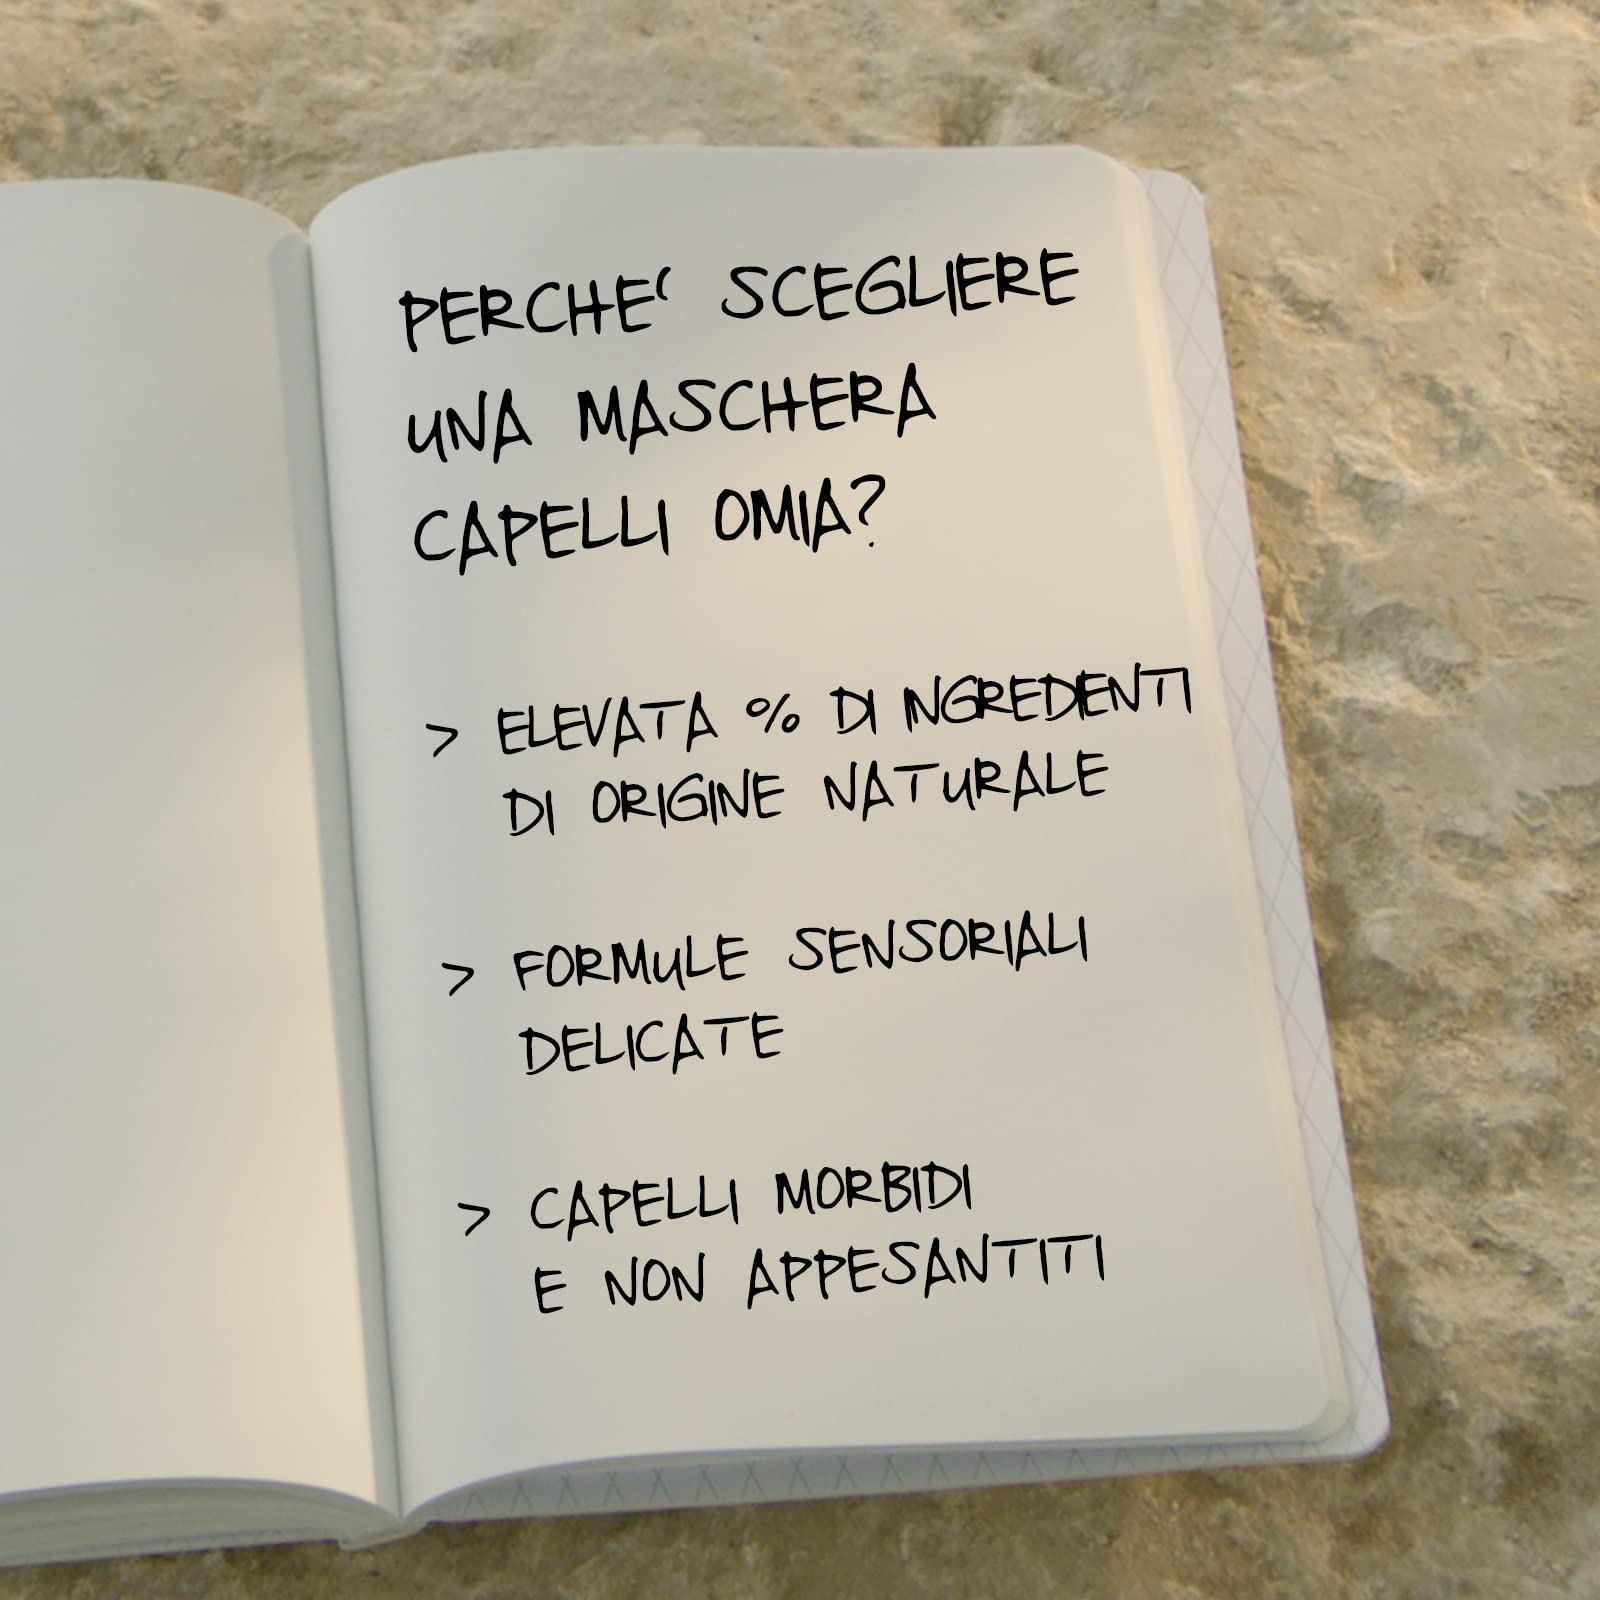 PERCHE' SCEGLIERE
UNA MASCHERA
CAPELLI OMIA?
> ELEVATA % DI INGREDIENTI
DI ORIGINE NATURALE
> FORMULE SENSORIALI
DELICATE
> CAPELLI MORBIDI
E NON APPESANTITI